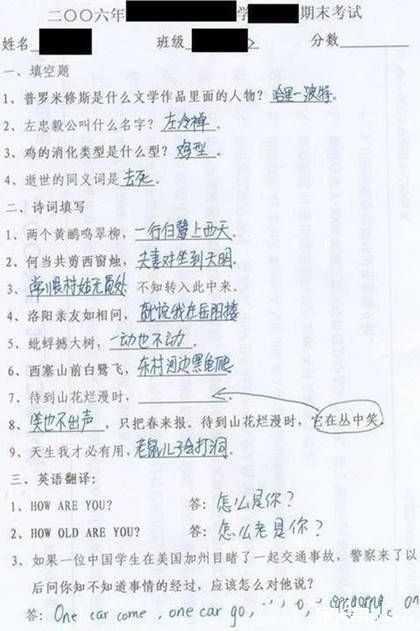 二〇〇六年 学 期末考试
姓名 班级 分数
一、填空题
1、普罗米修斯是什么文学作品里面的人物? 哈里一波特。
2、左忠毅公叫什么名字? 左冷禅。
3、鸡的消化类型是什么型? 鸡型。
4、逝世的同义词是 去死。
二、诗词填写
1、两个黄鹂鸣翠柳, 一行白鹭上西天。
2、何当共剪西窗烛, 夫妻对坐到天明。
3、常恨村姑无觅处 不知转入此中来。
4、洛阳亲友如相问, 就说我在岳阳楼
5、蚍蜉撼大树, 一动也不动。
6、西塞山前白鹭飞, 东村河边黑龟爬
7、待到山花烂漫时,
8、笑也不出声, 只把春来报。待到山花烂漫时, 它在丛中笑。
9、天生我才必有用, 老鼠儿子会打洞。
三、英语翻译:
1、HOW ARE YOU? 答: 怎么是你?
2、HOW OLD ARE YOU? 答: 怎么老是你?
3、如果一位中国学生在美国加州目睹了一起交通事故, 警察来了以
后问你知不知道事情的经过, 应该怎么对他说?
答: One car come, one car go,